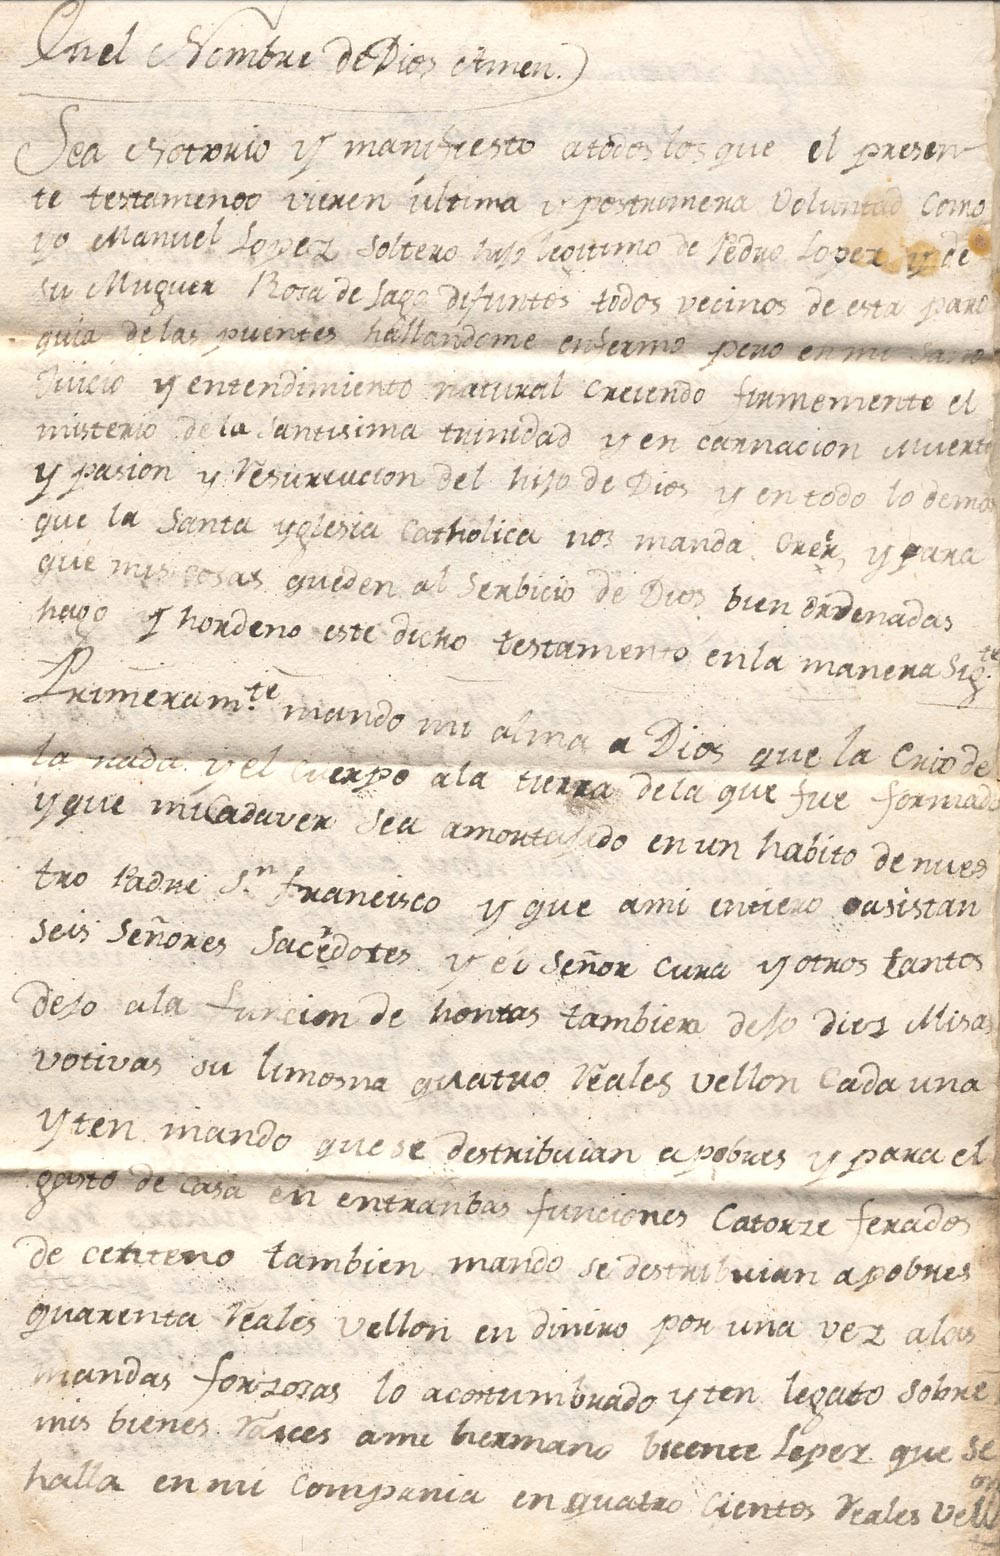 Enel Nombre de Dios Amen.)
Sea Notorio y manifiesto atodos los que el presen
te testamento vieren última y postrimera Voluntad Como
yo Manuel Lopez Soltero hijo legitimo de Pedro Lopez y de
su Muguer Rosa de Jago difuntos todos vecinos de esta parro
quia de las puentes hallandome enfermo pero en mi sano
Juicio y entendimiento natural Creiendo firmemente el
misterio de la Santisima trinidad y en carnacion Muerte
y pasion y Resureucion del hijo de Dios y en todo lo demas
que la Santa yglesia Catholica nos manda Crer, y para
que mis cosas queden al Serbicio de Dios bien ordenadas
hago y hordeno este dicho testamento en la manera Sigte.
Primeramte. mando mi alma a Dios que la Crio de
la nada y el Cuerpo ala tierra dela que fue formado
y que mi Cadaver Sea amortajado en un habito de nues
tro Padre Sn. francisco y que ami entiero asistan
seis Señores Sacerdotes y el Señor Cura y otros tantos
dejo ala funcion de honras tambien dejo diez Misas
votivas su limosna quatro Reales vellon Cada una
yten mando que se destribuian a pobres y para el
gasto de casa en entranbas funciones Catorze ferados
de centeno tambien mando se destribuian apobres
quarenta Reales vellon en diniro por una vez alas
mandas forzozas lo acostumbrado yten legato sobre
mis bienes Raices ami hermano bicente Lopez que se
halla en mi Compania en quatro Cientos Reales Vellon